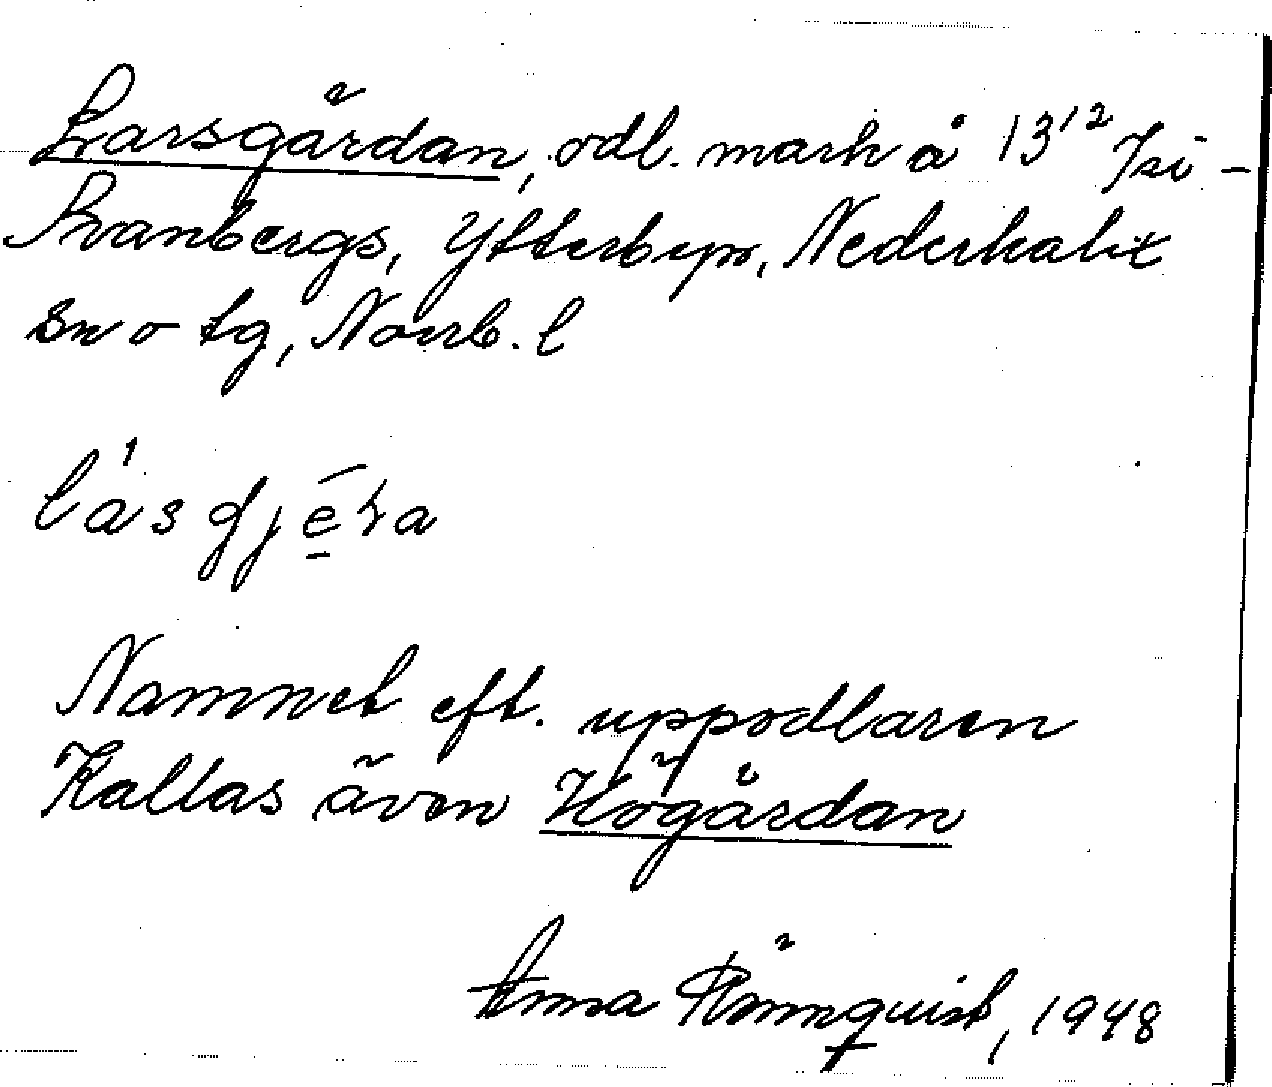 Larsgärdan, odl. mark å 13¹²
Svanbergs, Ytterbyn, Nederkalix
sn o tg, Norrb. l
Namnet eft. uppodlaren
Kallas även Högärdan
Anna Rönnquist, 1948